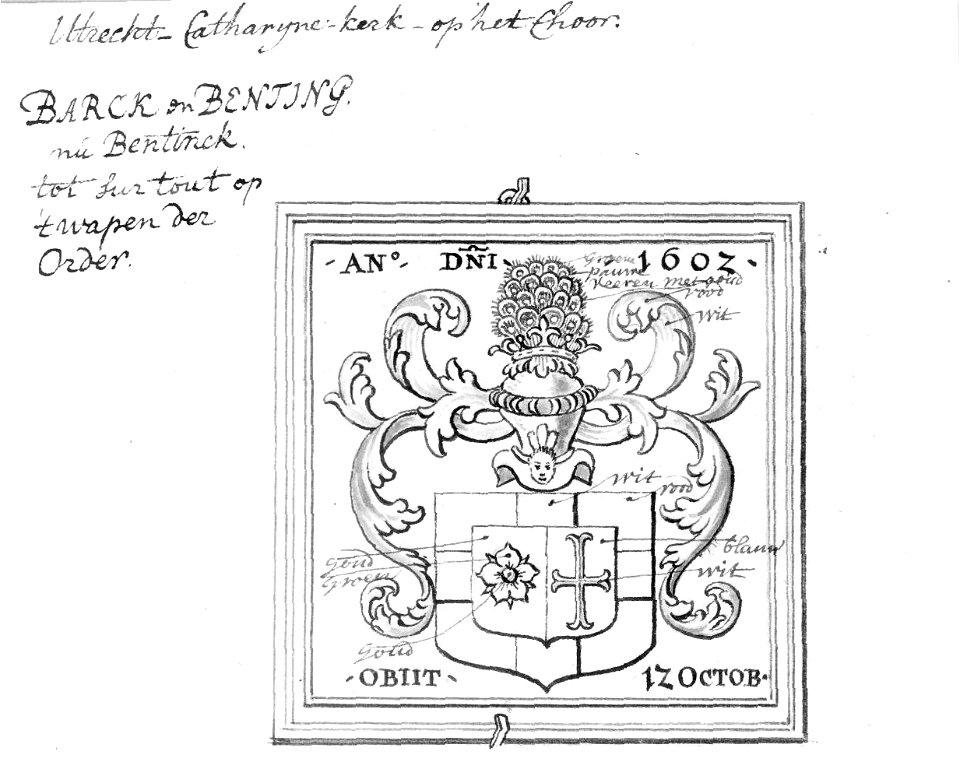 Utrecht - Catharyne-kerk - op het Choor.
BARCK en BENTING.
nu Bentinck.
tot sur tout op
't wapen der
Order.
· AN° · DÑI · 1602 ·
Groene
pauwe
veeren met goud
rood
wit
wit
rood
blauw
wit
goud
Groen
goud
· OBIIT · 12 OCTOB ·